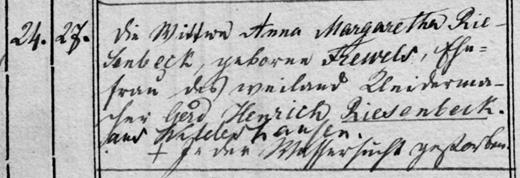 24. 27. die Wittwe Anna Margaretha Rie-
senbeck, geborne Frewels, Ehe-
frau des weiland Kleiderma-
cher Gerd Henrich Riesenbeck.
aus hausen.
† der Wassersucht gestorben.